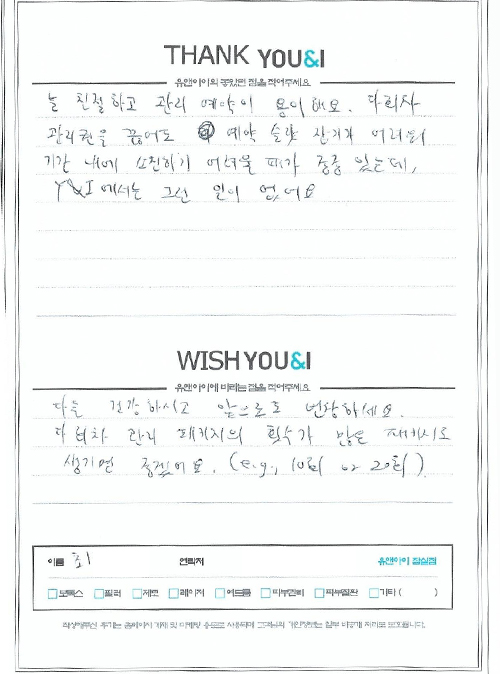 THANK YOU&I
유앤아이의 좋았던 점을 적어주세요
늘 친절하고 관리 예약이 용이해요. 다회차
관리권을 끊어도 예약 슬랏 잡기가 어려워
기간 내에 소진하기 어려울 때가 종종 있는데,
Y&I에서는 그런 일이 없어요
WISH YOU&I
유앤아이에 바라는 점을 적어주세요
다들 건강하시고 앞으로도 번창하세요.
다회차 관리 패키지의 횟수가 많은 패키지도
생기면 좋겠어요. (e.g., 10회 or 20회)
이름 최 연락처 유앤아이 잠실점
보톡스 필러 제모 레이저 여드름 피부관리 피부질환 기타 ( )